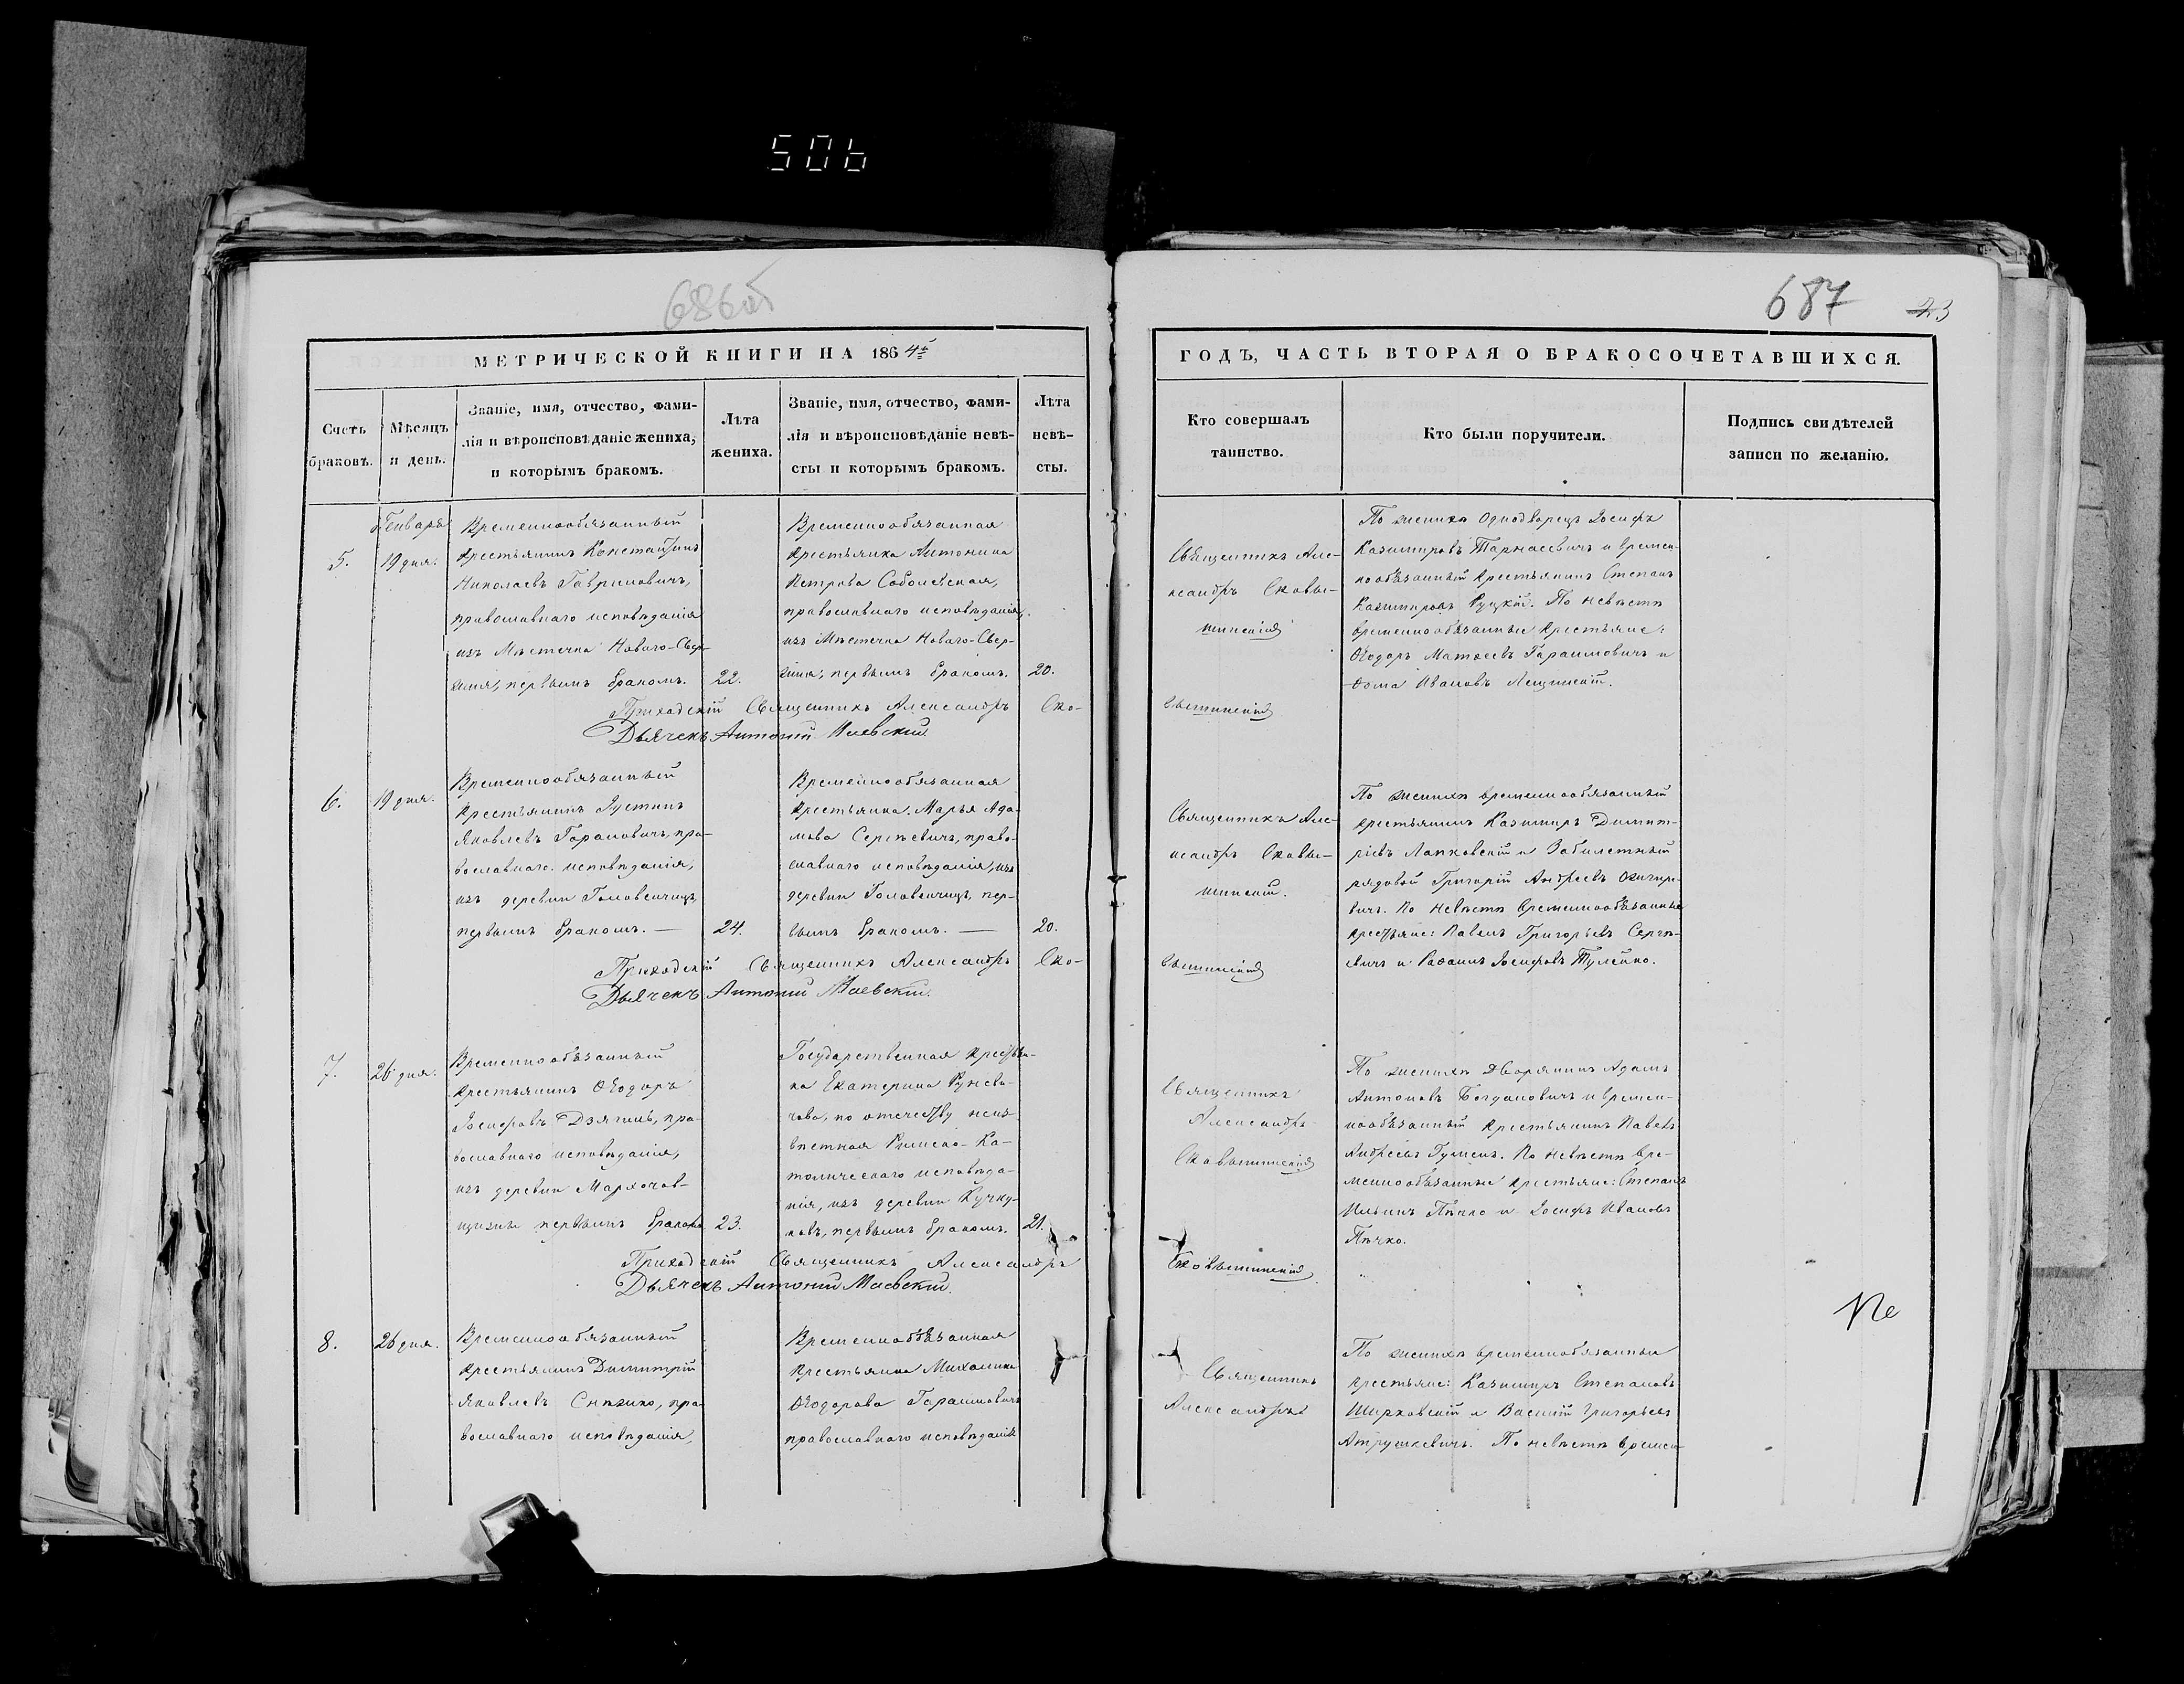 506
686об
687
23
МЕТРИЧЕСКОЙ КНИГИ НА 1864й
ГОДЪ, ЧАСТЬ ВТОРАЯ О БРАКОСОЧЕТАВШИХСЯ.
Счетъ
браковъ.
Мѣсяцъ
и день.
Званіе, имя, отчество, фами-
лія и вѣроисповѣданіе жениха,
и которымъ бракомъ.
Лѣта
жениха.
Званіе, имя, отчество, фами-
лія и вѣроисповѣданіе невѣ-
сты и которымъ бракомъ.
Лѣта
невѣ-
сты.
Кто совершалъ
таинство.
Кто были поручители.
Подпись свидѣтелей
записи по желанію.
5.
Генваря
19 дня.
Временнообязанный
крестьянинъ Константинъ
Николаевъ Гавриловичъ,
православнаго исповѣданія
изъ Мѣстечка Новаго-Свер-
женя, первымъ бракомъ.
22.
Временнообязанная
крестьянка Антонина
Петрова Соболевская,
православнаго исповѣданія,
изъ Мѣстечка Новаго-Свер-
женя, первымъ бракомъ.
20.
Священникъ Але-
ксандръ Сковы-
шинскій
По женихѣ Однодворецъ Іосифъ
Казимировъ Тарнасевичъ и времен-
нообязанный крестьянинъ Степанъ
Казимировъ Руцкій. По невѣстѣ
временнообязанные крестьяне:
Ѳеодоръ Матвеевъ Гарашмовичъ и
Ѳома Ивановъ Лещинскій.
Приходскій Священникъ Александръ Ско-
вышинскій
Дьячекъ Антоній Маевскій
6.
19 дня.
Временнообязанный
крестьянинъ Іустинъ
Яковлевъ Горановичъ, пра-
вославнаго исповѣданія,
изъ деревни Головенчицъ,
первымъ бракомъ. —
24.
Временнообязанная
крестьянка Марья Ада-
мова Сергѣевичъ, право-
славнаго исповѣданія, изъ
деревни Головенчицъ, пер-
вымъ бракомъ. —
20.
Священникъ Але-
ксандръ Сковы-
шинскій.
По женихѣ временнообязанный
крестьянинъ Казимиръ Димит-
ріевъ Лапковскій и Забилетный
рядовой Григорій Андреевъ
вичъ. По невѣстѣ временнообязанные
крестьяне: Павелъ Григорьевъ Сергѣ-
евичъ и Іосифовъ Тулейко.
Приходскій Священникъ Александръ Ско-
вышинскій
Дьячекъ Антоній Маевскій.
7.
26 дня.
Временнообязанный
крестьянинъ Ѳеодоръ
Іосифовъ Дзягиль, пра-
вославнаго исповѣданія,
изъ деревни Мархочов-
щизны первымъ бракомъ
23.
Государственная крестьян-
ка Екатерина Руневи-
чова, по отечеству неиз-
вѣстная Римско-Ка-
толическаго исповѣда-
нія, изъ деревни Кучку-
новъ, первымъ бракомъ.
21.
Священникъ
Александръ
Сковышинскій
По женихѣ Дворянинъ Адамъ
Антоновъ Богдановичъ и времен-
нообязанный крестьянинъ Павелъ
Андреевъ Гуменъ. По невѣстѣ вре-
меннообязанные крестьяне: Степанъ
Ильинъ Пѣчко и Іосифъ Ивановъ
Пѣчко.
Приходскій Священникъ Александръ
Сковышинскій
Дьячекъ Антоній Маевскій.
8.
26 дня.
Временнообязанный
крестьянинъ Димитрій
Яковлевъ Снѣжко, пра-
вославнаго исповѣданія,
Временнообязанная
крестьянка Михалина
Ѳеодорова Гарашмовичъ
православнаго исповѣданія
Священникъ
Александръ
По женихѣ временнобязанные
крестьяне: Казимиръ Степановъ
Ширковскій и Василій Григорьевъ
Атрушкевичъ. По невѣстѣ времен-